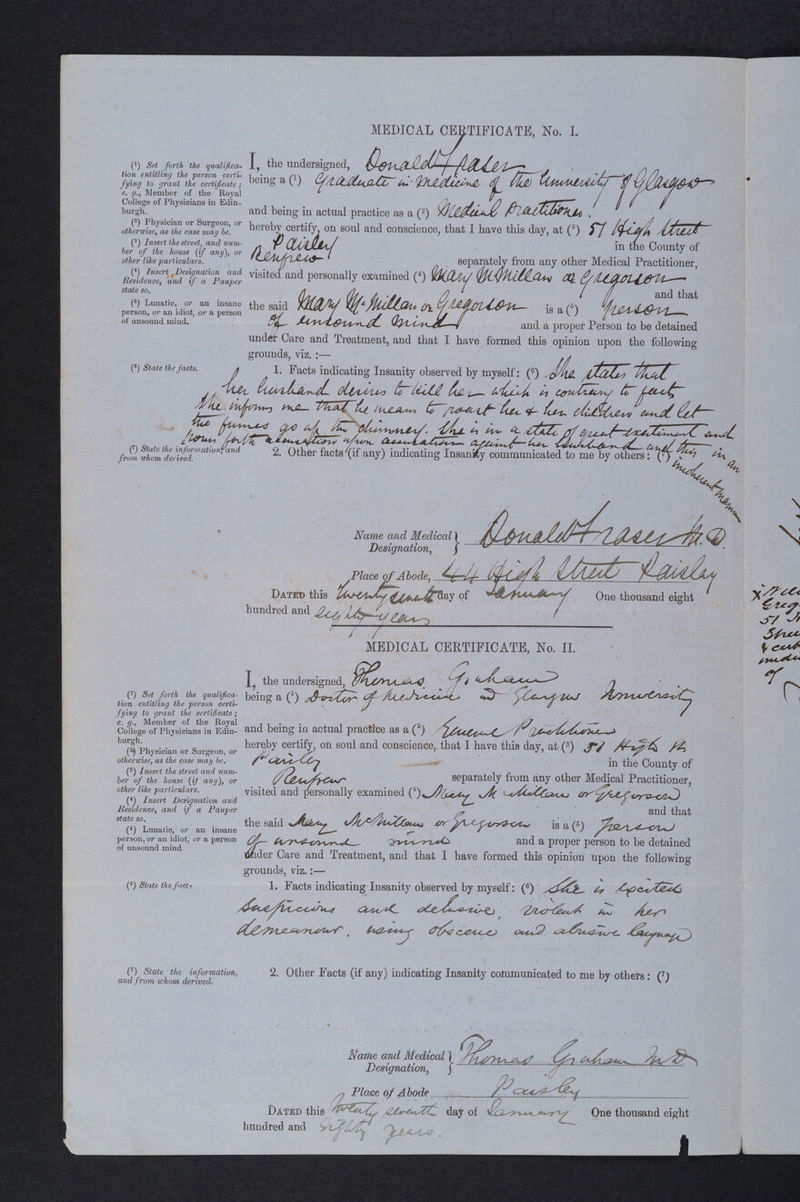 MEDICAL CERTIFICATE, No. I.
(¹) Set forth the qualifica-
tion entitling the person certi-
fying to grant the certificate;
e. g., Member of the Royal
College of Physicians in Edin-
burgh.
(²) Physician or Surgeon, or
otherwise, as the case may be.
(³) Insert the street, and num-
ber of the house (if any), or
other like particulars.
(⁴) Insert Designation and
Residence, and if a Pauper
state so.
(⁵) Lunatic, or an insane
person, or an idiot, or a person
of unsound mind.
(⁶) State the facts.
(⁷) State the information and
from whom derived.
I, the undersigned, Donald Fraser
being a (¹) Graduate in Medicine of the University of Glasgow
and being in actual practice as a (²) Medical Practitioner.
hereby certify, on soul and conscience, that I have this day, at (³) 51 High Street
Paisley in the County of
Renfrew separately from any other Medical Practitioner,
visited and personally examined (⁴) Mary McMillan or Gregorson
and that
the said Mary McMillan or Gregorson is a (⁵) person
of unsound mind and a proper Person to be detained
under Care and Treatment, and that I have formed this opinion upon the following
grounds, viz. :—
1. Facts indicating Insanity observed by myself: (⁶) She states that
her husband desires to kill her which is contrary to fact,
She informs me that he means to roast her & her children and let
the fumes go up the chimney. She is in a state of great excitement and
pours forth accusations upon accusation against her husband and this in an
incoherent manner
2. Other facts (if any) indicating Insanity communicated to me by others: (⁷)
Name and Medical Designation, Donald Fraser M.D.
Place of Abode, 44 High Street Paisley
DATED this twenty seventh day of January One thousand eight
hundred and eighty years
MEDICAL CERTIFICATE, No. II.
(¹) Set forth the qualifica-
tion entitling the person certi-
fying to grant the certificate;
e. g., Member of the Royal
College of Physicians in Edin-
burgh.
(²) Physician or Surgeon, or
otherwise, as the case may be.
(³) Insert the street and num-
ber of the house (if any), or
other like particulars.
(⁴) Insert Designation and
Residence, and if a Pauper
state so.
(⁵) Lunatic, or an insane
person, or an idiot, or a person
of unsound mind
(⁶) State the facts.
(⁷) State the information,
and from whom derived.
I, the undersigned, Thomas Graham
being a (¹) Doctor of Medicine Glasgow University
and being in actual practice as a (²) General Practitioner
hereby certify, on soul and conscience, that I have this day, at (³) 51 High St
Paisley in the County of
Renfrew separately from any other Medical Practitioner,
visited and personally examined (⁴) Mary McMillan or Gregorson
and that
the said Mary McMillan or Gregorson is a (⁵) person
of unsound mind and a proper person to be detained
under Care and Treatment, and that I have formed this opinion upon the following
grounds, viz. :—
1. Facts indicating Insanity observed by myself: (⁶) She is excited
suspicious and delusive, violent in her
demeanour, using obscene and abusive language
2. Other Facts (if any) indicating Insanity communicated to me by others: (⁷)
Name and Medical Designation, Thomas Graham MD
Place of Abode Paisley
DATED this twenty seventh day of January One thousand eight
hundred and Eighty years.
51